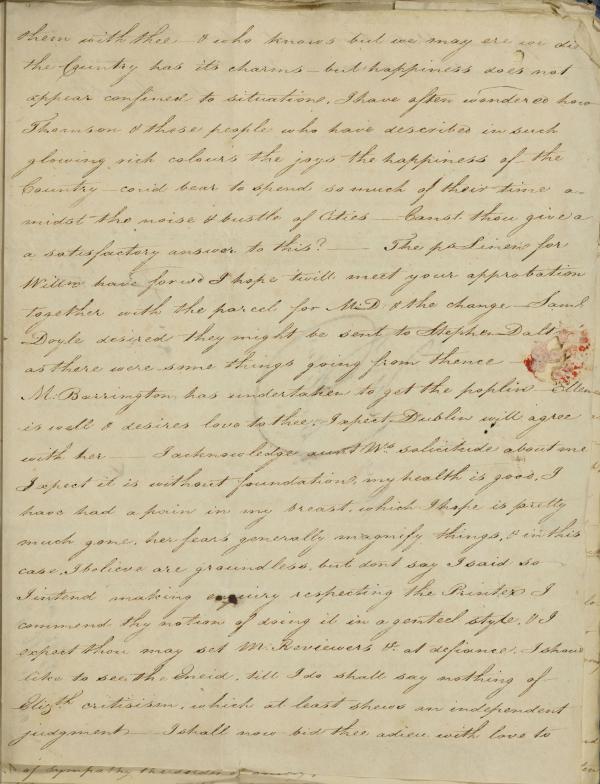 them with thee – & who knows but we may ere we di
the Country has its charms – but happiness does not
appear confined to situation. I have often wondered how
Thomson & those people who have described in such
glowing rich colours the joys the happiness of the
Country – could bear to spend so much of their time a-
midst the noise & bustle of Cities – Canst thou give a
a satisfactory answer to this? – The ps Linen for
Willm have forwd I hope twill meet your approbation
together with the parcel for M:D. & the change – Saml
Doyle desired they might be sent to Stephen Dalt
as there were some things going from thence –
M: Barrington has undertaken to get the poplin –
is well & desires love to thee. I expect Dublin will agree
with her – I acknowledge aunt Ws solicitude about me
I expect it is without foundation, my health is good, I
have had a pain in my breast, which I hope is pretty
much gone, her fears generally magnify things, & in this
case, I believe are groundless, but dont say I said so
I intend making enquiry respecting the Printer I
commend thy notion of doing it in a genteel style, & I
expect thou may set Mr. Reviewers &c. at defiance. I should
like to see the Eneid, till I do shall say nothing of
Elizth critisism, which at least shews an independent
judgment – I shall now bid thee adieu with love to
of sympathy, the